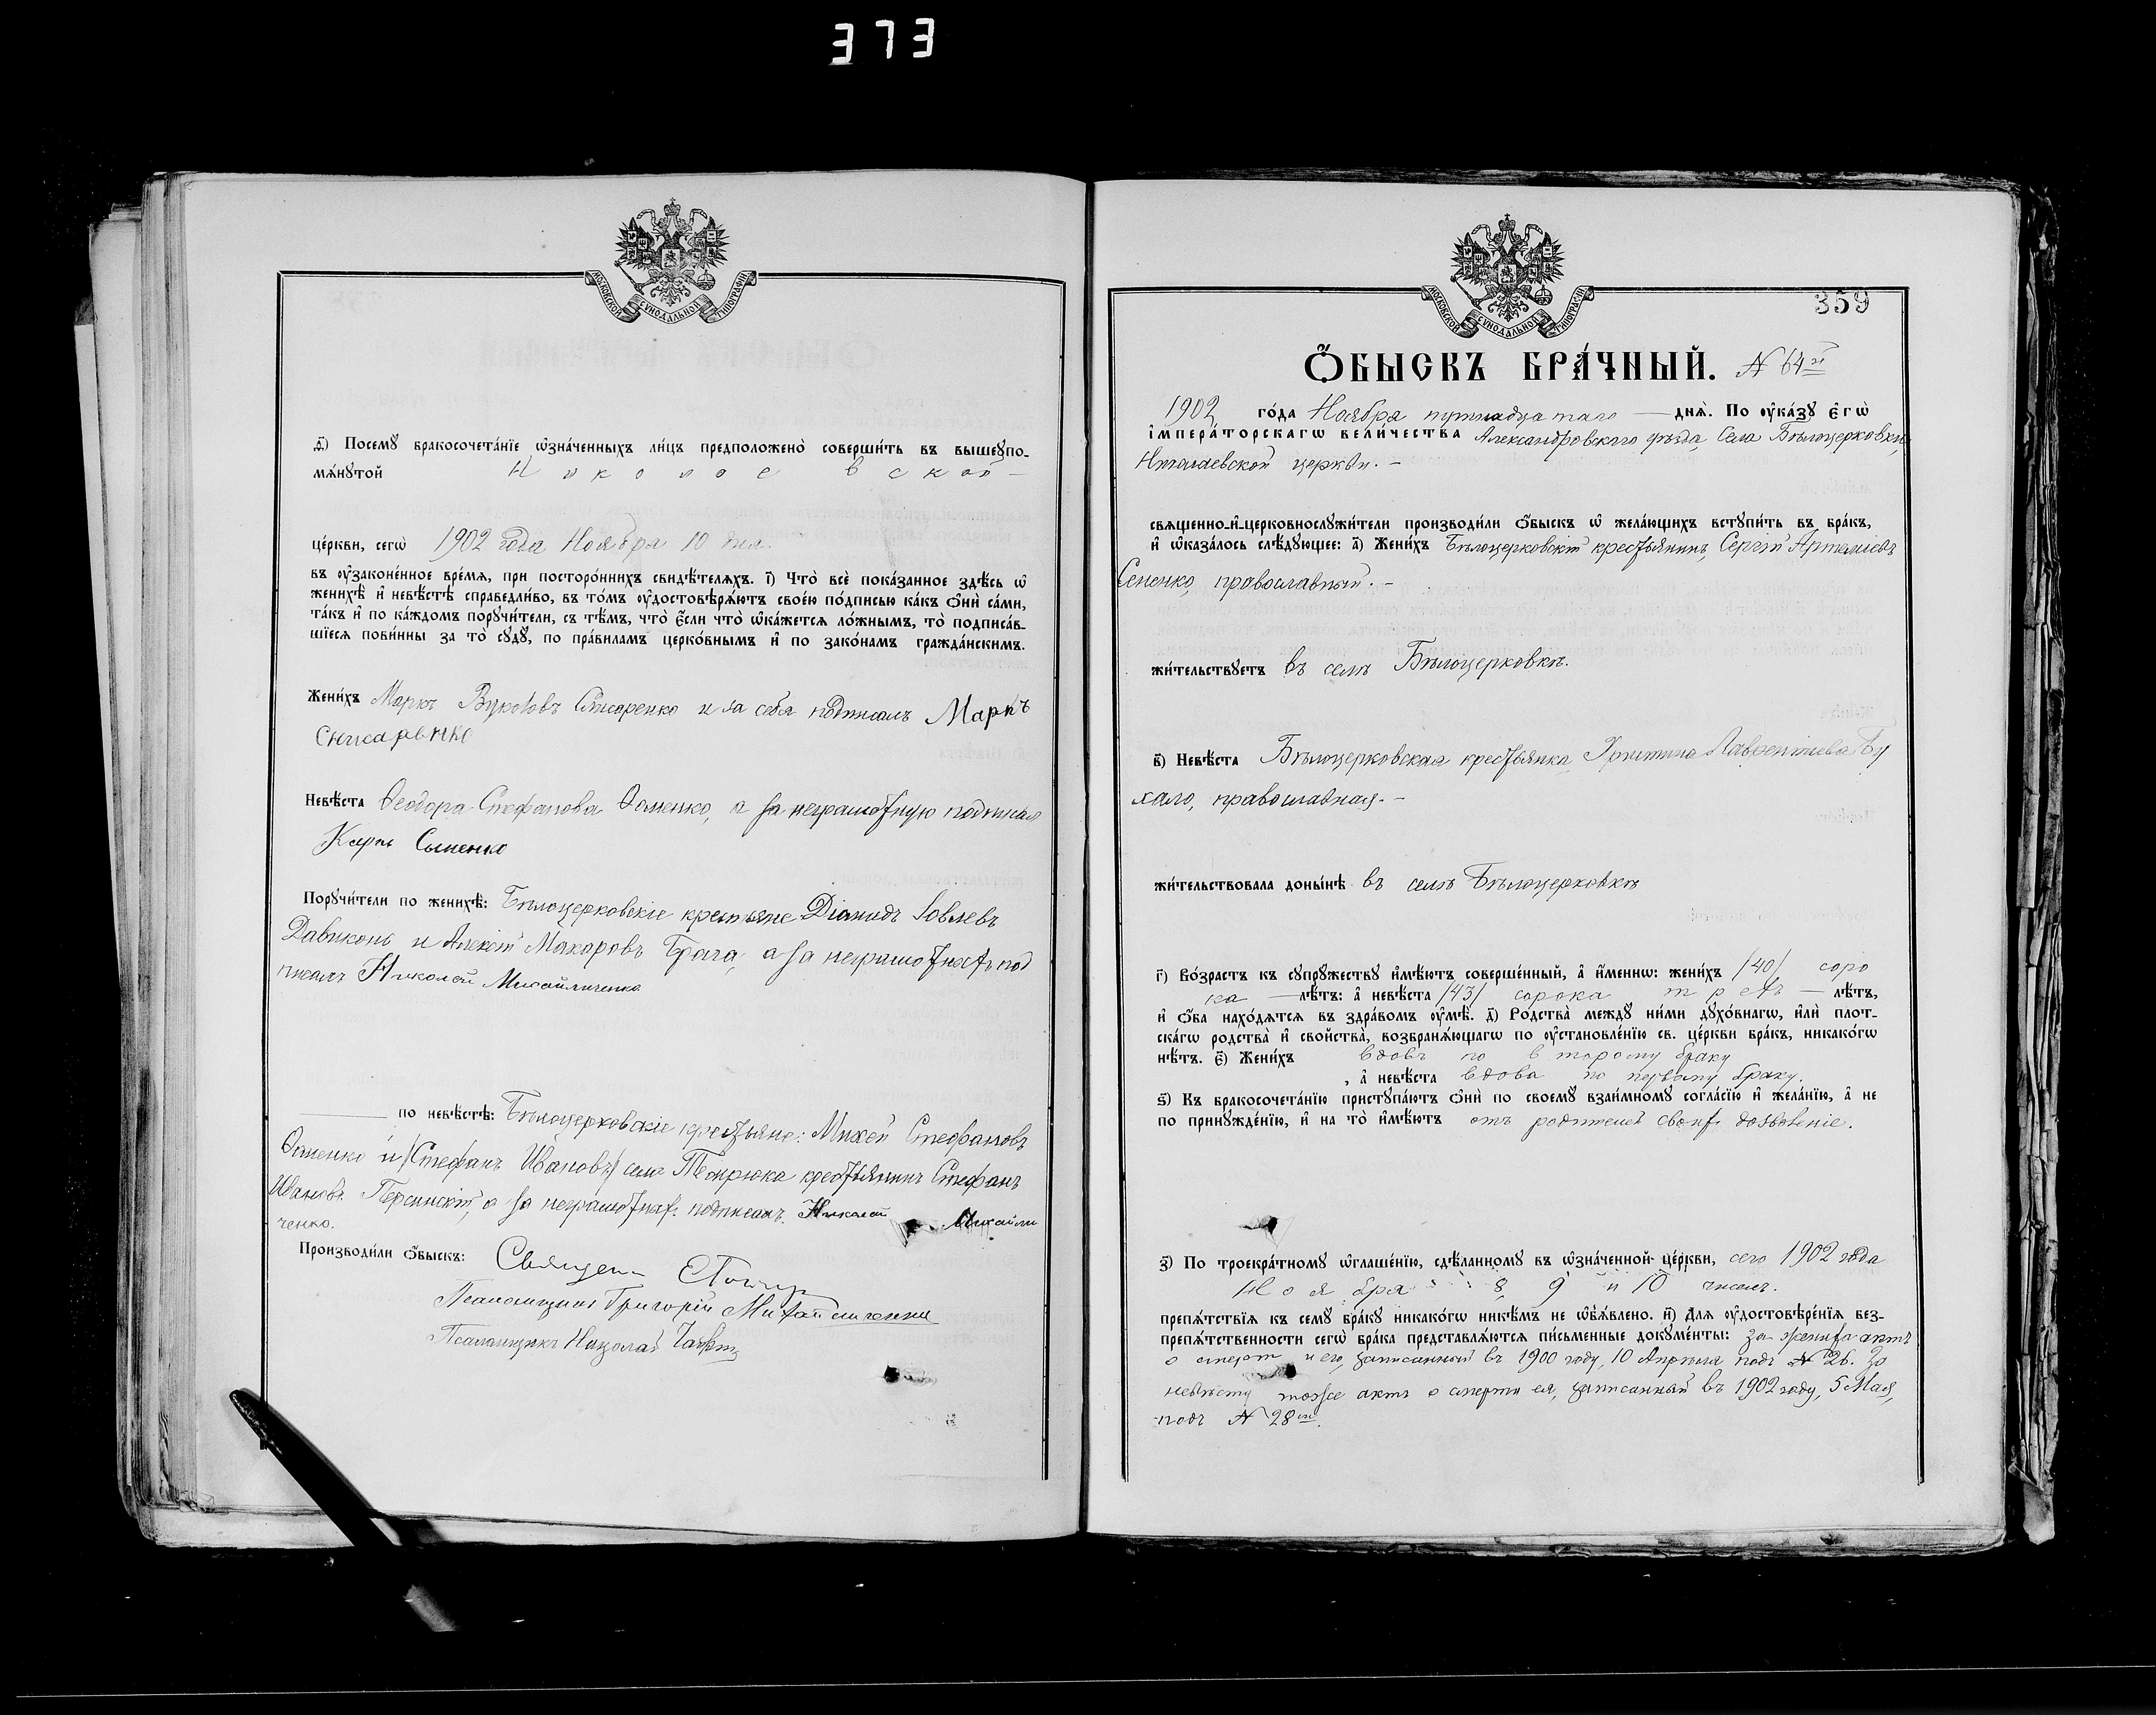 373
МОСКОВСКОЙ СѴНОДАЛЬНОЙ ТИПОГРАФІИ
д҃) Посемꙋ бракосочета́нїе ѡ҆зна́ченныхъ ли́цъ предположено̀ соверши́ть въ вышеꙋпо-
мѧ́нꙋтой Николаевской
це́ркви, сегѡ̀ 1902 года Ноября 10 дня.
въ ᲂу҆зако́ненное вре́мѧ, при посторо́ннихъ свидѣ́телѧхъ. і҃) Что̀ всѐ пока́занное здѣ́сь ѡ҆
женихѣ̀ и҆ невѣ́стѣ справедли́во, въ то́мъ ᲂу҆достовѣрѧ́ютъ свое́ю по́дписью ка́къ ѻ҆нѝ са́ми,
та́къ и҆ по ка́ждомъ порꙋчи́тели, съ тѣ́мъ, что̀ є҆́сли что̀ ѡ҆ка́жетсѧ ло́жнымъ, то̀ подписа́в-
шїесѧ пови́нны за то̀ сꙋдꙋ̀, по пра́виламъ церко́внымъ и҆ по зако́намъ гражда́нскимъ.
Жени́хъ Маркъ Вуколовъ и за себя подписалъ Маркъ
Невѣ́ста Ѳеодора Стефанова Ѳоменко, а за неграмотную подписал
Карпъ Сыпенко
Порꙋчи́тели по женихѣ̀: Бѣлоцерковскіе крестьяне Діомидъ Іовлевъ
и Алексѣй Макаровъ Брага, а за неграмотнахъ под
писалъ Николай Михайличенко
по невѣ́стѣ: Бѣлоцерковскіе крестьяне: Михей Стефановъ
Ѳоменко и (Стефанъ Ивановъ) села Темрюка крестьянинъ Стефанъ
Ивановъ а за неграмотнах. подписалъ. Николай Михайли
ченко.
Производи́ли ѻ҆́быскъ: Священ.
Псаломщикъ Григорій Михайличенко
Псаломщикъ Николай
МОСКОВСКОЙ СѴНОДАЛЬНОЙ ТИПОГРАФІИ
359
Ѻ҆́БЫСКЪ БРА́ЧНЫЙ. № 64й
1902 го́да Ноября дня̀. По ᲂу҆ка́зꙋ є҆гѡ̀
і҆мпера́торскагѡ вели́чества Александровскаго уѣзда, Села Бѣлоцерковки,
Николаевской церкви. –
свѧщенно-и҆-церковнослꙋжи́тели производи́ли ѻ҆́быскъ ѡ҆ жела́ющихъ встꙋпи́ть въ бра́къ,
и҆ ѡ҆каза́лось слѣ́дꙋющее: а҃) Жени́хъ Бѣлоцерковскій крестьянинъ, Сергій Артеміевъ
Сененко, православный. –
жи́тельствꙋетъ въ селѣ Бѣлоцерковкѣ.
в҃) Невѣ́ста Бѣлоцерковская крестьянка, Христина Лаврентіева Бу
хало, православная. –
жи́тельствовала доны́нѣ въ селѣ Бѣлоцерковкѣ
г҃) Во́зрастъ къ сꙋпрꙋ́жествꙋ и҆мѣ́ютъ соверше́нный, а҆ и҆́менно: жени́хъ /40/ соро
ка — лѣ́тъ: а҆ невѣ́ста /43/ сорока трехъ — лѣ́тъ,
и҆ ѻ҆́ба нахо́дѧтсѧ въ здра́вомъ ᲂу҆мѣ̀. д҃) Родства̀ междꙋ ни́ми дꙋхо́внагѡ, и҆лѝ пло́т-
скагѡ родства̀ и҆ свойства̀, возбранѧ́ющагѡ по ᲂу҆становле́нїю св. це́ркви бра́къ, никако́гѡ
нѣ́тъ. є҃) Жени́хъ вдовъ по второму браку
, а҆ невѣ́ста вдова по первому браку.
ѕ҃) Къ бракосочета́нїю пристꙋпа́ютъ ѻ҆нѝ по своемꙋ̀ взаи́мномꙋ согла́сїю и҆ жела́нїю, а҆ не
по принꙋжде́нїю, и҆ на то̀ и҆мѣ́ютъ отъ родителей своих дозволеніе.
з҃) По троекра́тномꙋ ѡ҆глаше́нїю, сдѣ́ланномꙋ въ ѡ҆зна́ченной це́ркви, сего 1902 года
Ноября 8, 9 и 10 чиселъ.
препѧ́тствїѧ къ семꙋ̀ бра́кꙋ никако́гѡ никѣ́мъ не ѡ҆б̾ѧ́влено. и҃) Длѧ ᲂу҆достовѣре́нїѧ без-
препѧ́тственности сегѡ̀ бра́ка представлѧ́ютсѧ пи́сьменные докꙋме́нты: за жениха актъ
о смерти его, записанный въ 1900 году, 10 Апрѣля подъ № 26. За
невѣсту тоже актъ о смерти ея, записанный въ 1902 году, 5 Мая,
подъ № 28м.